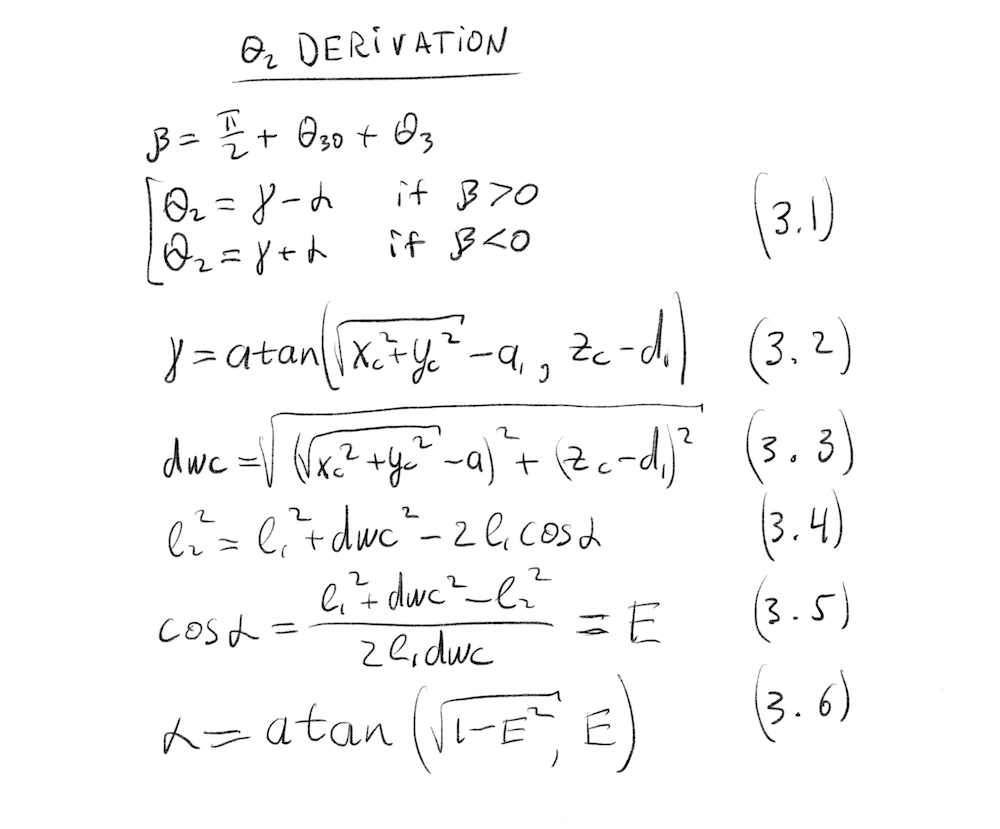 θ₂ DERiVATiON
β = π/2 + θ₃₀ + θ₃
θ₂ = γ - α if β > 0
(3.1)
θ₂ = γ + α if β < 0
γ = atan(√(x_c² + y_c²) - a₁, z_c - d₁) (3.2)
dwc = √((√(x_c² + y_c²) - a)² + (z_c - d₁)²) (3.3)
l₂² = l₁² + dwc² - 2l₁cosα (3.4)
cosα = (l₁² + dwc² - l₂²)/(2l₁dwc) = E (3.5)
α = atan(√(1-E²), E) (3.6)